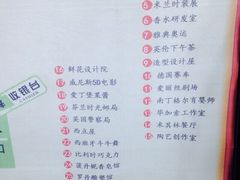 5 米兰时装展
6 香水研发室
7 雅典奥运
8 英伦下午茶
9 造型设计屋
10 德国赛车
11 爱丽丝剧场
12 南丁格尔育婴师
13 华加索工作室
14 米其林餐厅
15 陶艺创作室
收银台
CASHIER
16 鲜花设计院
17 威尼斯5D电影
18 爱丁堡果酱
19 芬兰时光邮局
20 英国警察局
21 西点屋
22 西班牙斗牛舞
23 比利时巧克力
24 蒲丹妮香皂馆
25 罗丹雕塑馆